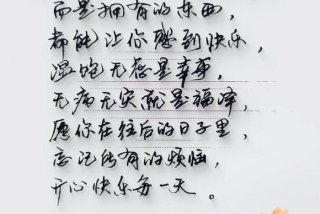 而是拥有的东西，
都能让你感到快乐，
温饱无虑是幸事，
无病无灾就是福泽，
愿你在往后的日子里，
忘记所有的烦恼，
开心快乐每一天。